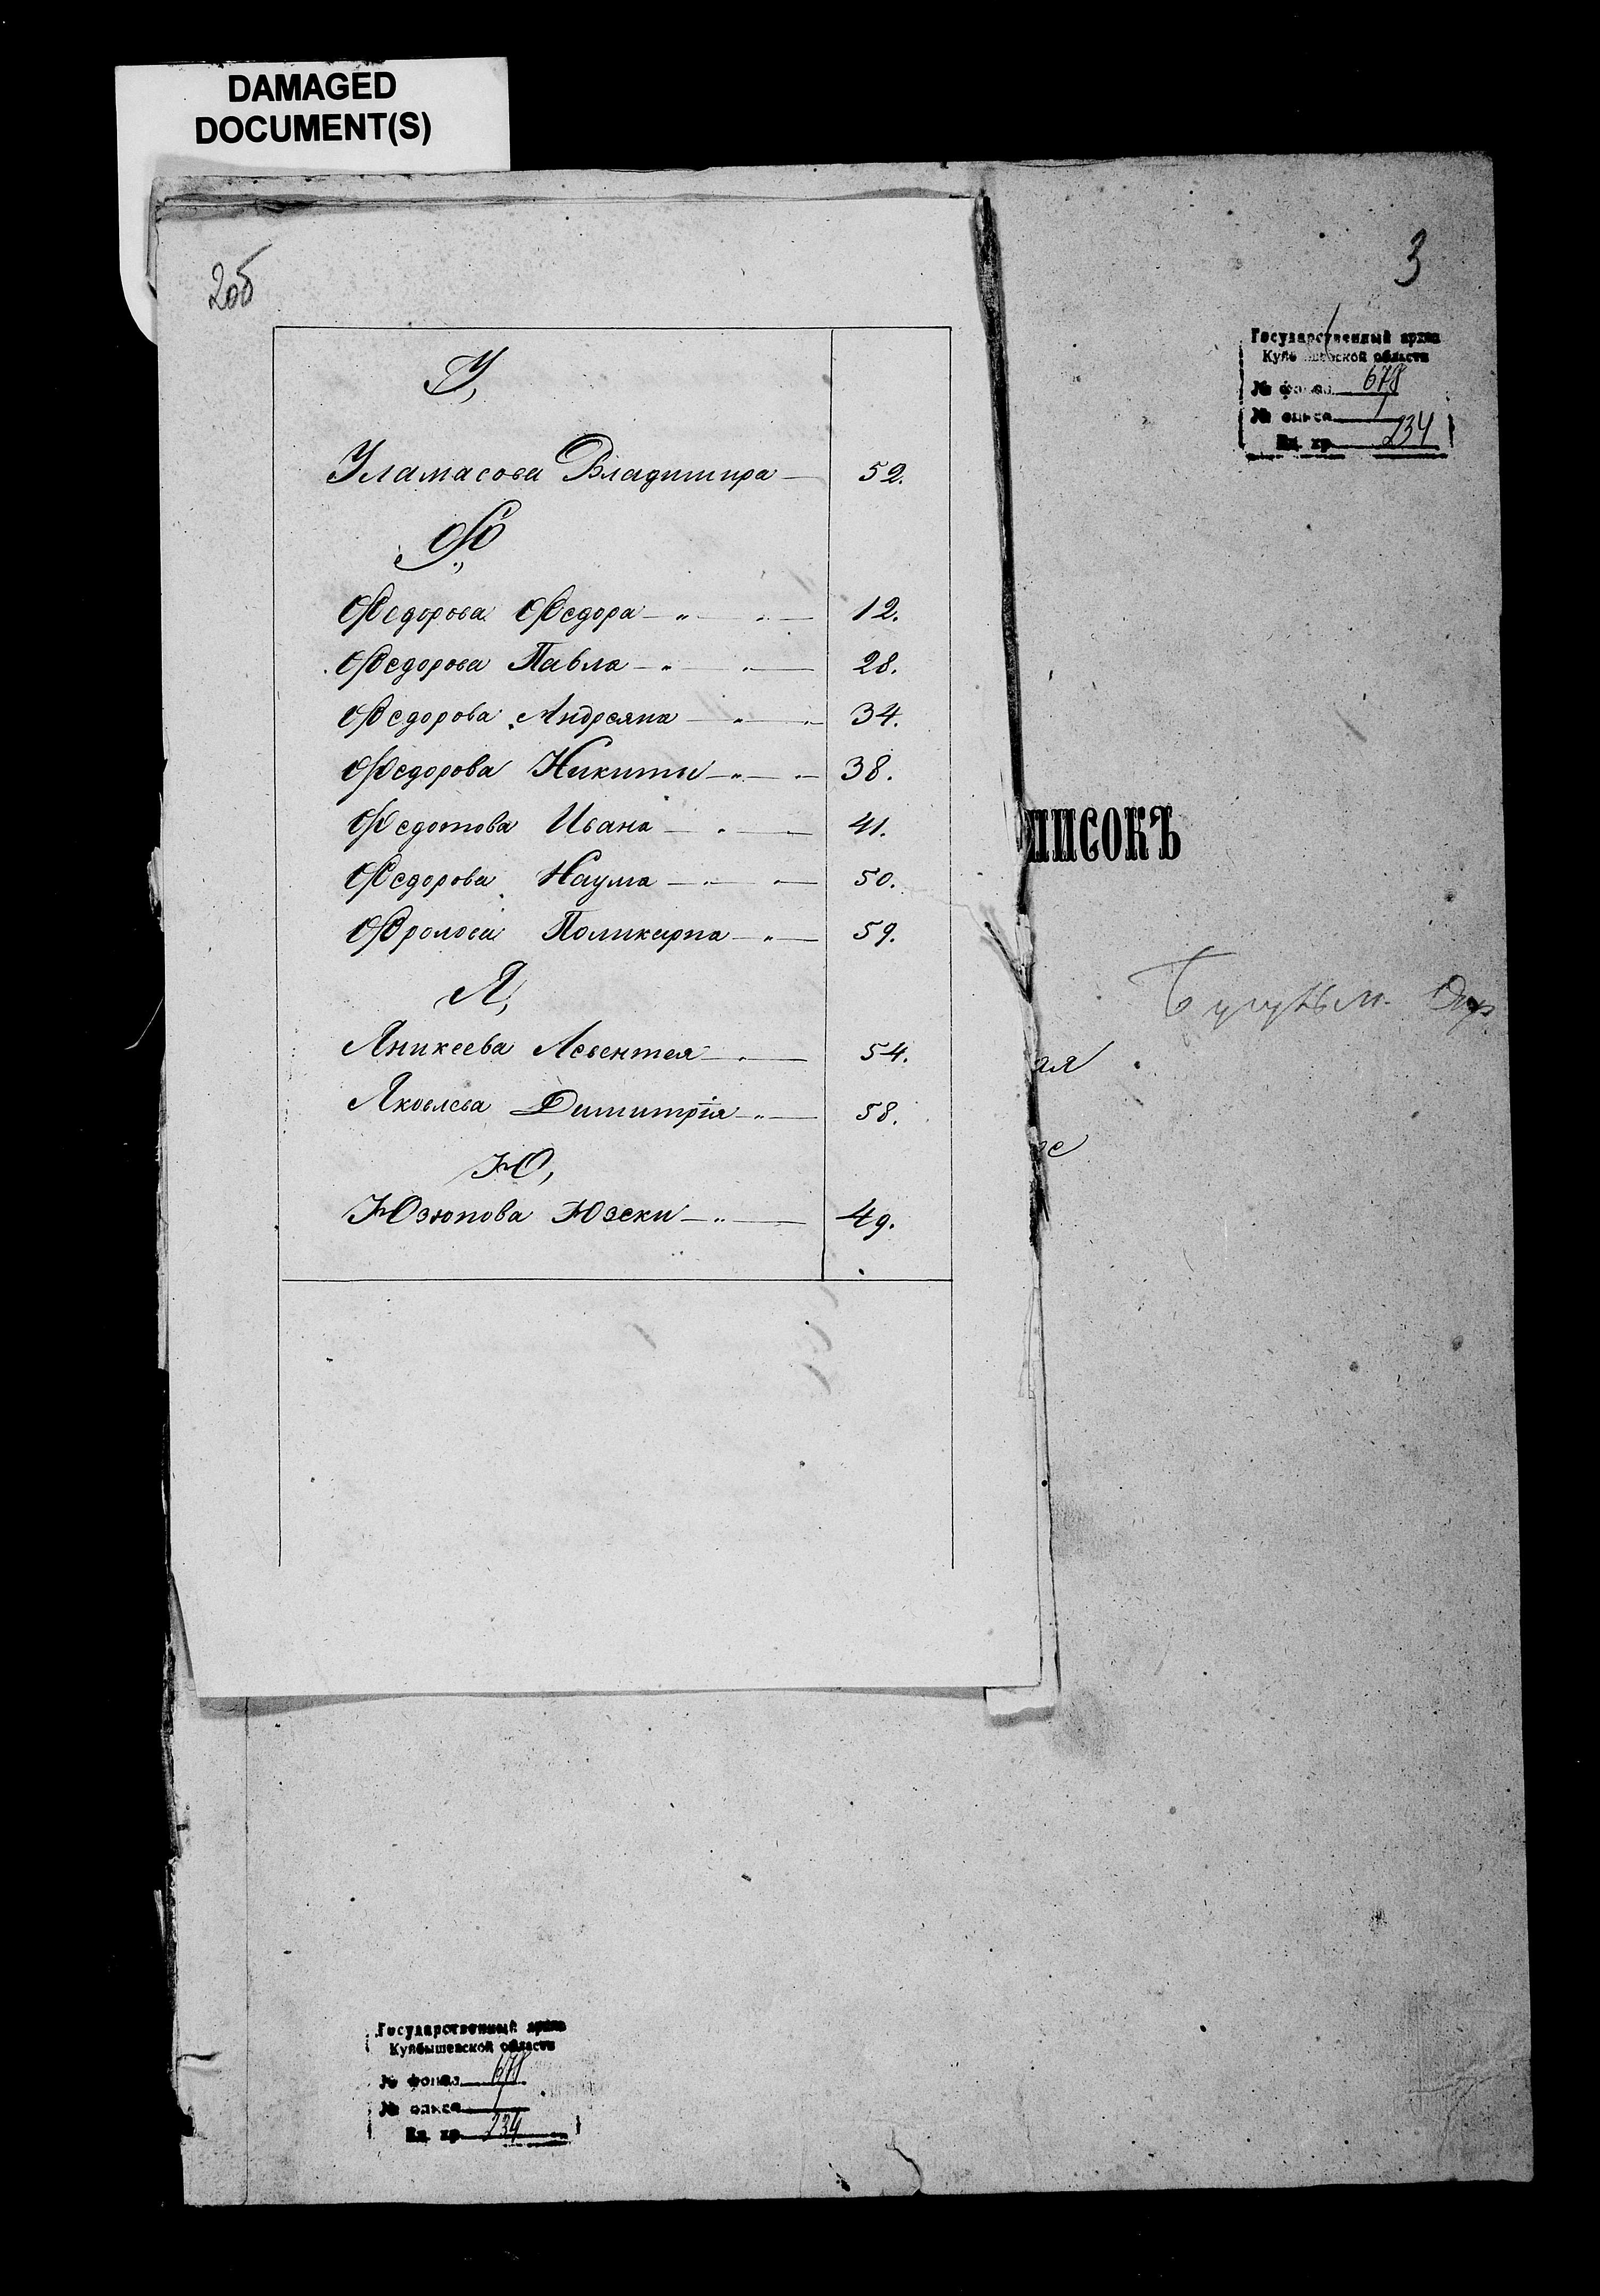 DAMAGED
DOCUMENT(S)
2об
У,
Уламасова Владимира — 52.
Ф,
Федорова Федора — „ — „ — 12.
Федорова Павла — „ — „ — 28.
Федорова Андреяна — „ — „ 34.
Федорова Никиты — „ — „ — 38.
Федотова Ивана — „ — „ — 41.
Федорова Наума — „ — „ — 50.
Фролова Поликарпа — „ — 59.
Я,
Яникеева Левентея — „ — 54.
Яковлева Димитрія — „ — 58.
Ю,
Юзюпова Юзеки — „ — 49.
3
Государственный архив
Куйбышевской области
№ фонда 678
№ описи 1
Ед. хр. 234
писокъ
Бугульм.
ая
ое
Государственный архив
Куйбышевской области
№ фонда 678
№ описи 1
Ед. хр. 234